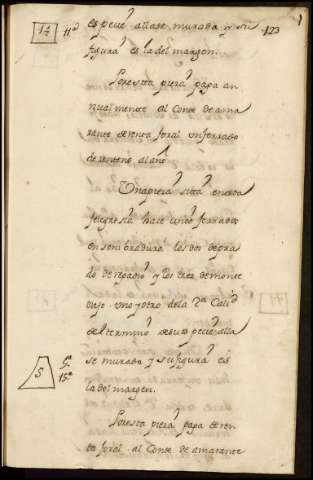 1½ 11ª espeue. allase murada y su 123
figura es la del margen.
Por esta pieza paga an
nualmente al Conde de ama
rante de renta foral un ferrado
de zenteno al año
Una pieza sita en esta
feligresia haze cinco ferrados
en sembradura los dos de pra
do de regadio y los tres de monte
bajo uno y otro de la 2ª Calid
del termino de su especie alla
5 5ª 15ª se murada y su figura es
la del margen.
Por esta pieza paga de ren
ta foral al Conde de amarante